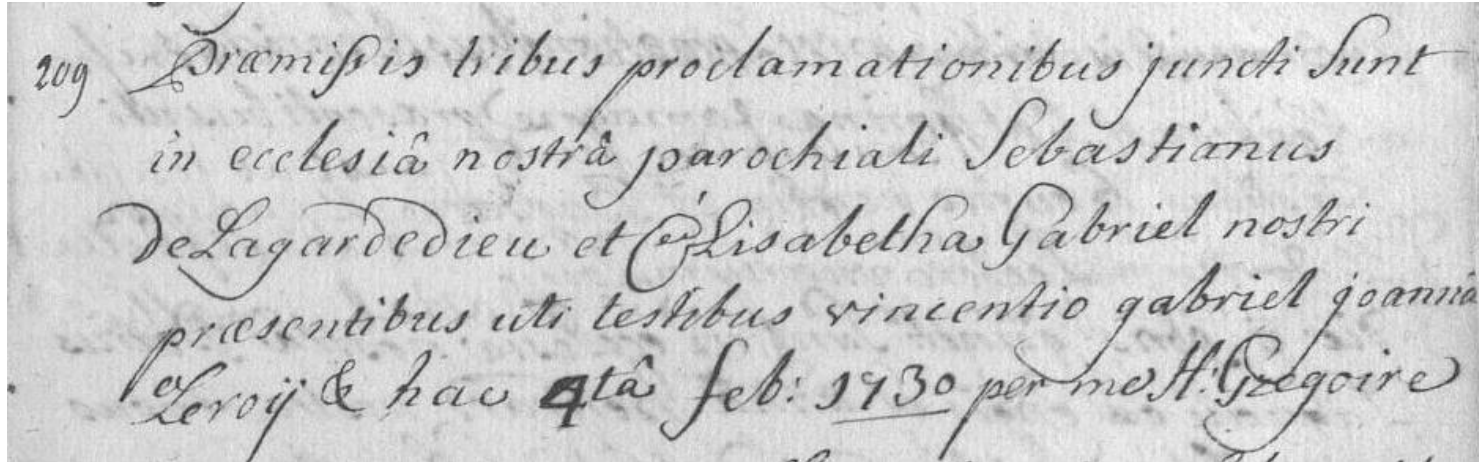 209 Præmissis tribus proclamationibus juncti Sunt
in ecclesiâ nostrâ parochiali Sebastianus
de Lagardedieu et Élisabetha Gabriel nostri
præsentibus uti testibus vincentio gabriel joannâ
Leroÿ & hac 4tâ feb: 1730 per me H: Gregoire